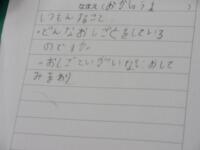 なまえ(おがわ)
しつもんなこと
・どんなおしごとをしている
のですか
・おしごといがいなにをして
みます